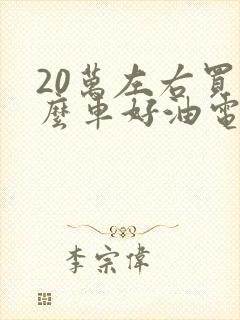 20萬左右買
麼車好油電
李宗偉